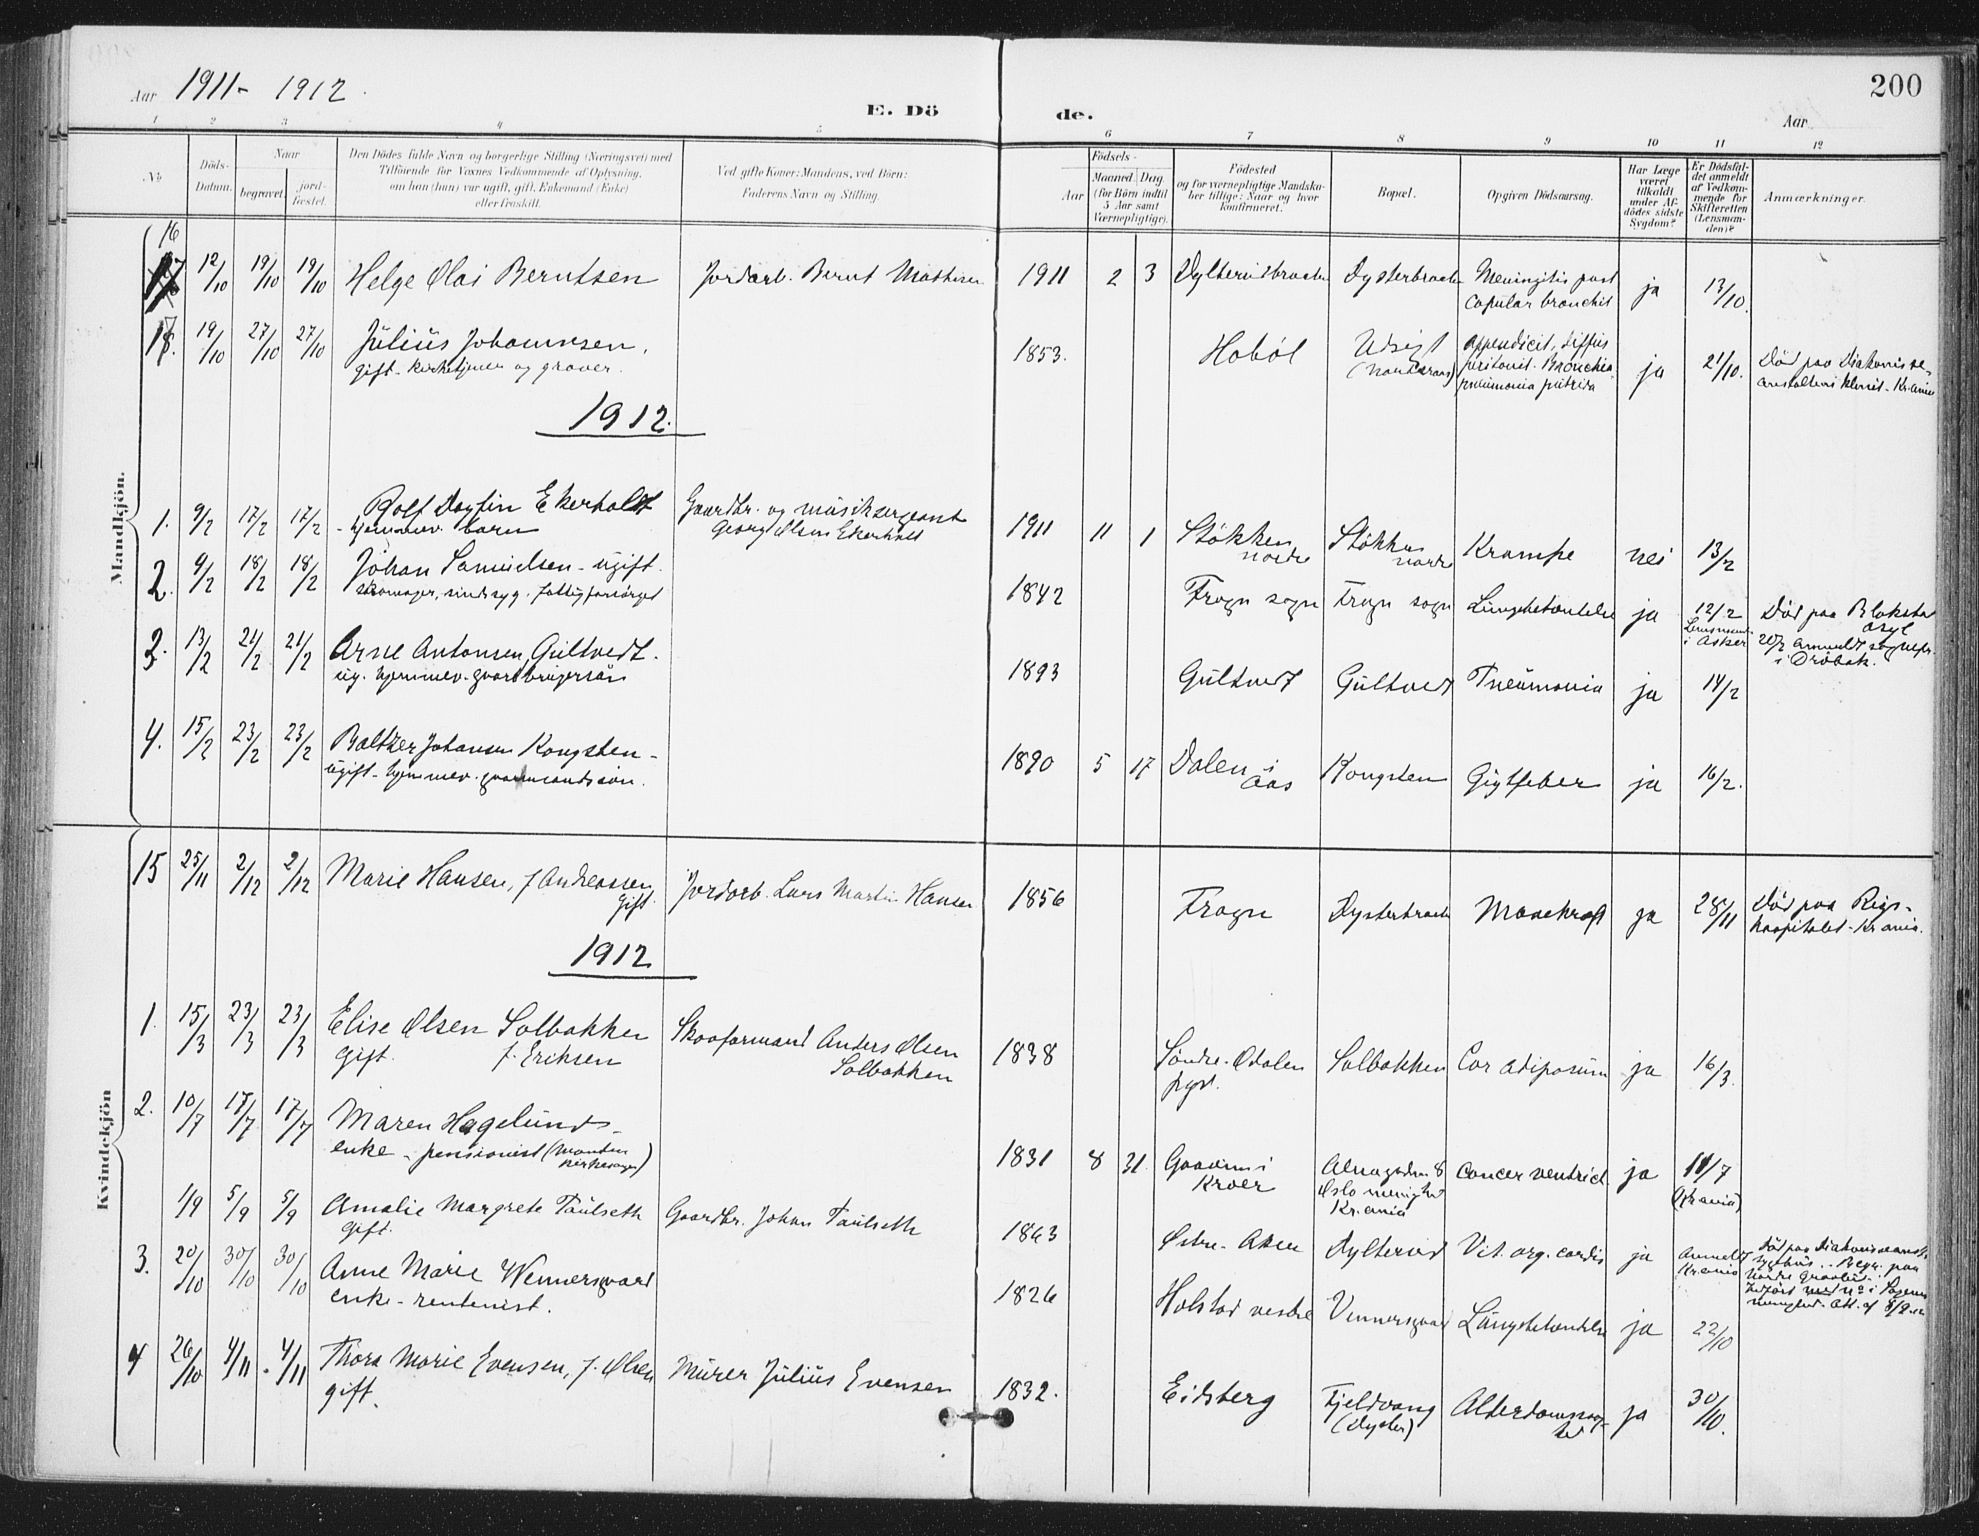 Aar 1911 - 1912.
E. Dö de.
Aar
200
1 2 3 4 5 6 7 8 9 10 11 12
No.
Döds-Datum.
Naar
begravet.
jord-fæstet.
Den Dödes fulde Navn og borgerlige Stilling (Næringsvei) med
Tilföiende for Voxnes Vedkommende af Oplysning,
om han (hun) var ugift, gift, Enkemand (Enke)
eller fraskilt.
Ved gifte Koner: Mandens, ved Börn:
Faderens Navn og Stilling.
Födsels-
Aar
Maaned. Dag
(for Börn indtil
5 Aar samt
Værnepligtige).
Födested
og for værnepligtige Mandska-
ber tillige: Naar og hvor
konfirmeret.
Bopæl.
Opgiven Dödsaarsag.
Har Læge
været
tilkaldt
under Af-
dödes sidste
Sygdom?
Er Dödsfal-
det anmeldt
af Vedkom-
mende for
Skifteretten
(Lensman-
den)?
Anmærkninger.
Mandkjön.
16 12/10 19/10 19/10 Helge Olai Berntsen Jordarb. Bernt Mathisen 1911 2 3 Dysterbraaten Meningitis post ja 13/10.
capular bronchit
17. 19/10 27/10 27/10 Julius Johannesen, 1853. Hobøl Udsigt appendicit, diffus ja 21/10. Død paa Diakonisse-
gift. kirketjener og graver. peritonit. Bronchio anstaltens klinik - Kr.ania
pneumonia putrida
1912.
1. 9/2 17/2 17/2 Rolf Dagfin Ekerholdt Gaardbr. og musiksergeant 1911 11 1 Støkken Støkken Krampe nei 13/2
- hjemmev. barn Georg Olsen Ekerholt nordre nordre
2. 9/2 18/2 18/2 Johan Samuelsen - ugift. 1842 Frogn sogn Frogn sogn Lungebetændelse ja 12/2 Død paa Blakstad
skomager, sindsyg. fattigforsørget Lensmand i Asker asyl
20/2 anmeldt sognepr.
i Drøbak.
3. 13/2 21/2 21/2 Arne Antonsen, Gultvedt. 1893 Gultvedt Gultvedt Pneumonia ja 14/2
ug. hjemmev. gaardbrugersøn
4. 15/2 23/2 23/2 Baltzer Johansen Kongsten - 1890 5 17 Dalen i Kongsten Gigtfeber ja 16/2.
ugift - hjemmev. gaardmandssøn. Aas
Kvindekjön
15 25/11 2/12 2/12 Marie Hansen, f. Andreassen Jordarb. Lars Martin Hansen 1856 Frogn Dysterbraaten Mavekræft ja 28/11 Død paa Rigs-
gift. hospitalet - Kr.ania.
1912
1. 15/3 23/3 23/3 Elise Olsen Solbakken Skogformand Anders Olsen 1838 Søndre - Odalen Solbakken Cor adiposum ja 16/3.
gift. f. Eriksen Solbakken pgd.
2. 10/7 17/7 17/7 Maren Hagelund - 1831 8 31. Gaarum i cancer ventricl. ja 11/7
enke - pensionist (manden kirkesanger) Kroer Oslo menighed Kr.ania (Kr.ania)
1/9 5/9 5/9 Amalie Margrete Taulseth Gaardbr. Johan Taulseth 1863 Østre - Aker Dysterud Vit. org. cordis ja Anmeldt Kr.ania
gift.
3. 20/10 30/10 30/10 Anne Marie Wennersgaard 1826 Holstad vestre Vennersgaard Lungebetændelse ja 22/10
enke - rentenist.
4 26/10 4/11 - 4/11 Thora Marie Evensen, f. Olsen Murer Julius Evensen 1832. Eidsberg Fjeldvang Alderdomssvag- ja 30/10.
gift. (Dyster) hed